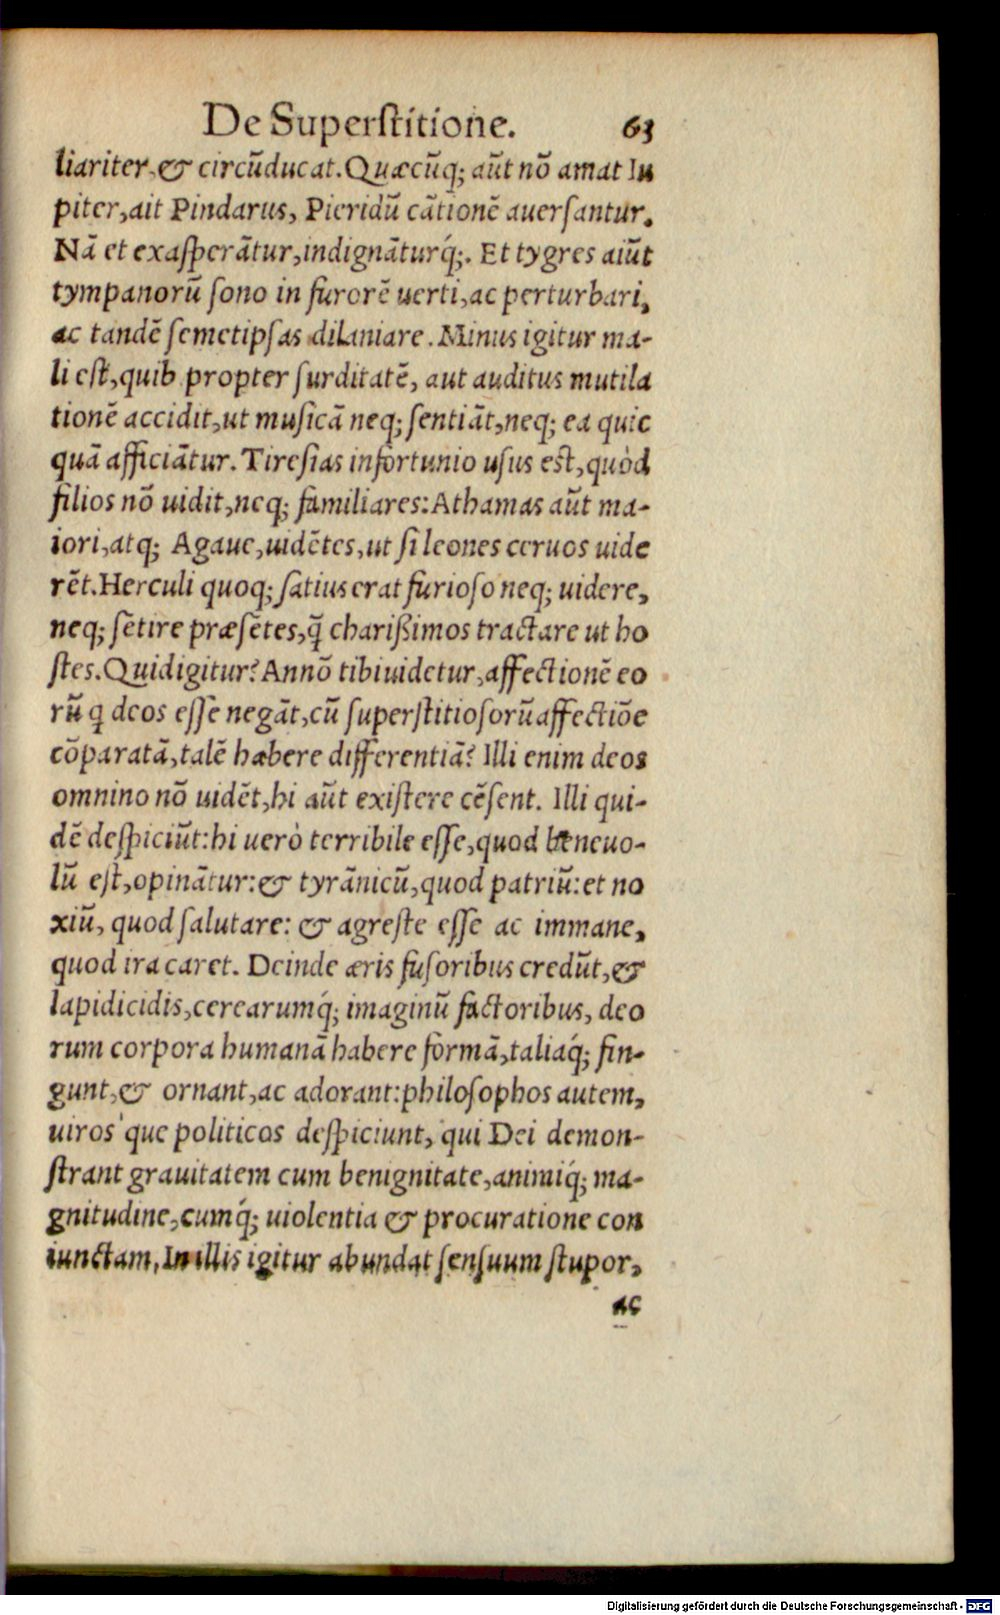 De Superſtitione. 63
liariter, & circũducat. Quæcũq; aũt nõ amat Iu
piter, ait Pindarus, Pieridũ cãtionẽ auerſantur.
Nã et exaſperãtur, indignãturq́;. Et tygres aiũt
tympanorũ ſono in furorẽ uerti, ac perturbari,
ac tandẽ ſemetipſas dilaniare. Minus igitur ma-
li eſt, quib propter ſurditatẽ, aut auditus mutila
tionẽ accidit, ut muſicã neq; ſentiãt, neq; ea quic
quã afficiãtur. Tireſias infortunio uſus eſt, quòd
filios nõ uidit, neq; familiares: Athamas aũt ma-
iori, atq; Agaue, uidẽtes, ut ſi leones ceruos uide
rẽt. Herculi quoq; ſatius erat furioſo neq; uidere,
neq; ſẽtire præſẽtes, q̃ charißimos tractare ut ho
ſtes. Quid igitur? An nõ tibi uidetur, affectionẽ eo
rũ q deos eſſe negãt, cũ ſuperſtitioſorũ affectiõe
cõparatã, talẽ habere differentiã? Illi enim deos
omnino nõ uidẽt, hi aũt exiſtere cẽſent. Illi qui-
dẽ deſpiciũt: hi uerò terribile eſſe, quod beneuo-
lũ eſt, opinãtur: & tyrãnicũ, quod patriũ: et no
xiũ, quod ſalutare: & agreſte eſſe ac immane,
quod ira caret. Deinde æris fuſoribus credũt, &
lapidicidis, cerearumq́; imaginũ factoribus, deo
rum corpora humanã habere formã, taliaq́; fin-
gunt, & ornant, ac adorant: philoſophos autem,
uiros que politicos deſpiciunt, qui Dei demon-
ſtrant grauitatem cum benignitate, animiq́; ma-
gnitudine, cumq́; uiolentia & procuratione con
iunctam, In illis igitur abundat ſenſuum ſtupor,
ac
Digitalisierung gefördert durch die Deutsche Forschungsgemeinschaft - DFG